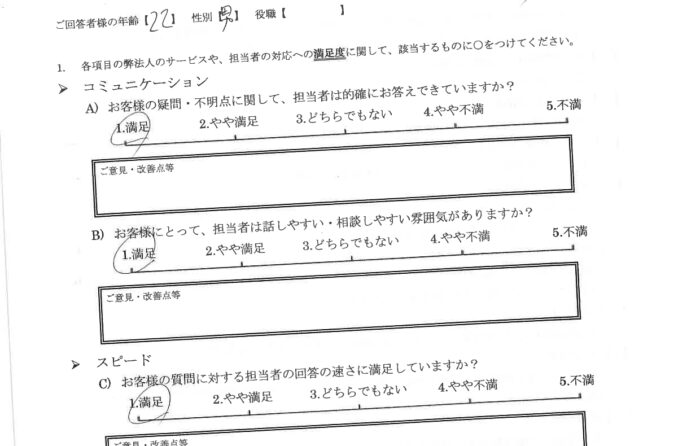 ご回答者様の年齢【22】 性別【男】 役職【 】
1. 各項目の弊法人のサービスや、担当者の対応への満足度に関して、該当するものに○をつけてください。
➤ コミュニケーション
A) お客様の疑問・不明点に関して、担当者は的確にお答えできていますか？
1.満足 2.やや満足 3.どちらでもない 4.やや不満 5.不満
ご意見・改善点等
B) お客様にとって、担当者は話しやすい・相談しやすい雰囲気がありますか？
1.満足 2.やや満足 3.どちらでもない 4.やや不満 5.不満
ご意見・改善点等
➤ スピード
C) お客様の質問に対する担当者の回答の速さに満足していますか？
1.満足 2.やや満足 3.どちらでもない 4.やや不満 5.不満
ご意見・改善点等